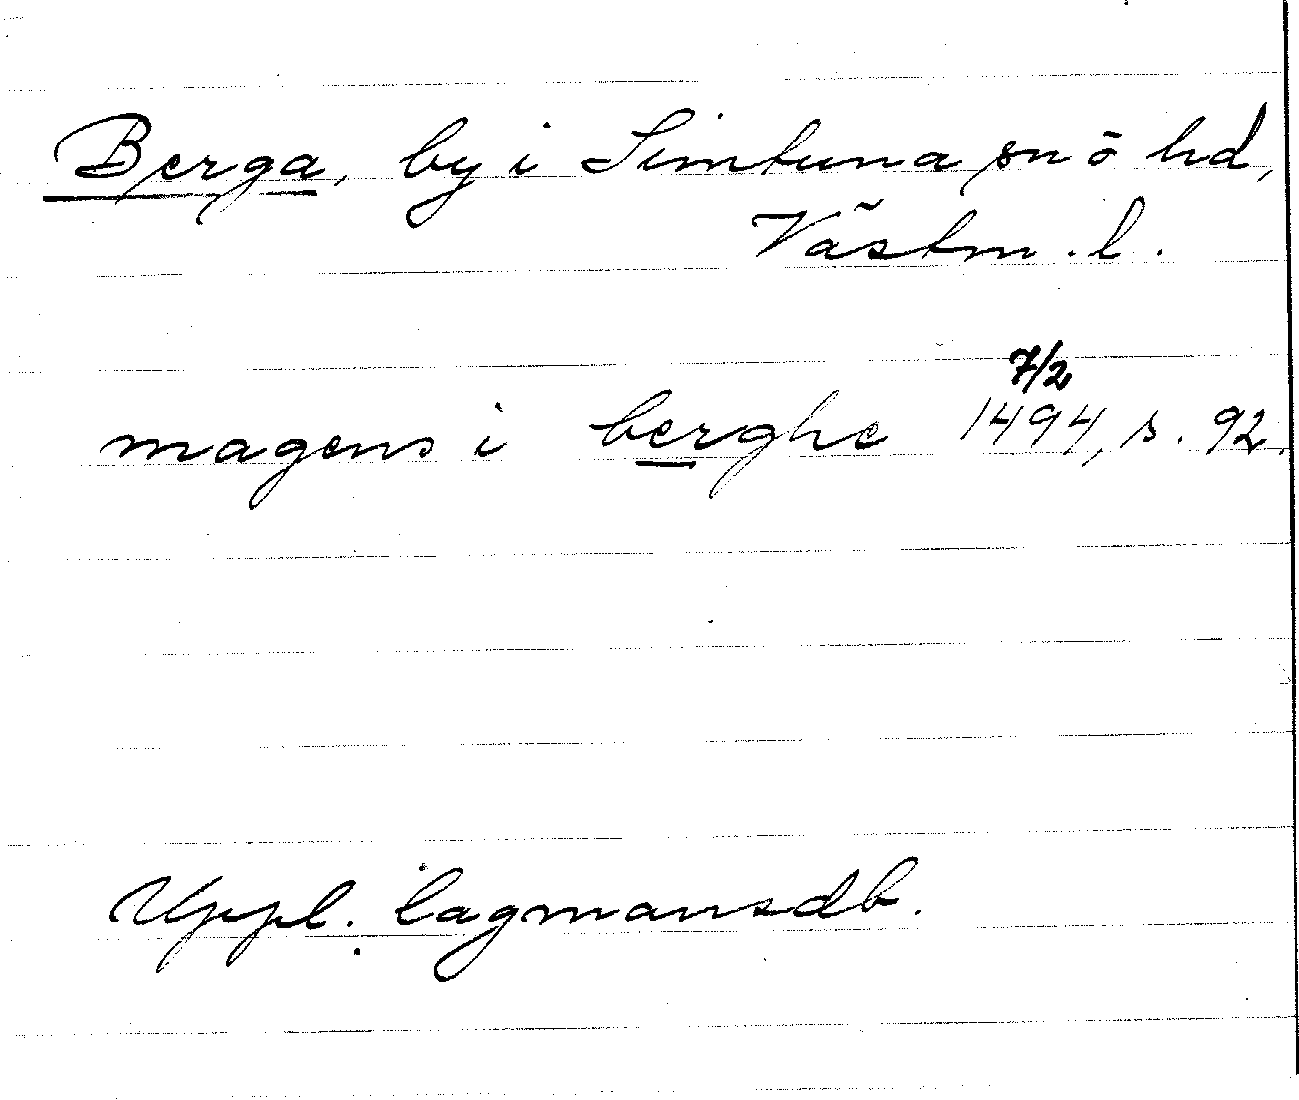 Berga, by i Simtuna sn ō hd,
Västm. l.
magens i berghe 7/2 1494, s. 92.
Uppl. lagmansdb.